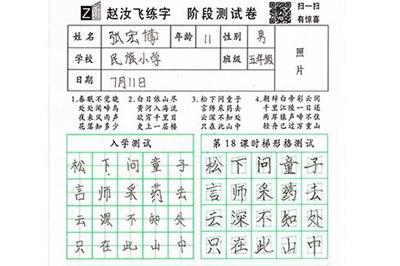 赵汝飞练字 阶段测试卷 扫一扫
有惊喜
姓名 张宏博 年龄 11 性别 男
学校 民族小学 班级 五年级
日期 7月11日
照片
1.春眠不觉晓 2.白日依山尽 3.松下问童子 4.朝辞白帝彩云间
处处闻啼鸟 黄河入海流 言师采药去 千里江陵一日还
夜来风雨声 欲穷千里目 只在此山中 两岸猿声啼不住
花落知多少 更上一层楼 云深不知处 轻舟已过万重山
入学测试 第18课时梯形格测试
松下问童子 松下问童子
言师采药去 言师采药去
云深不知处 云深不知处
只在此山中 只在此山中